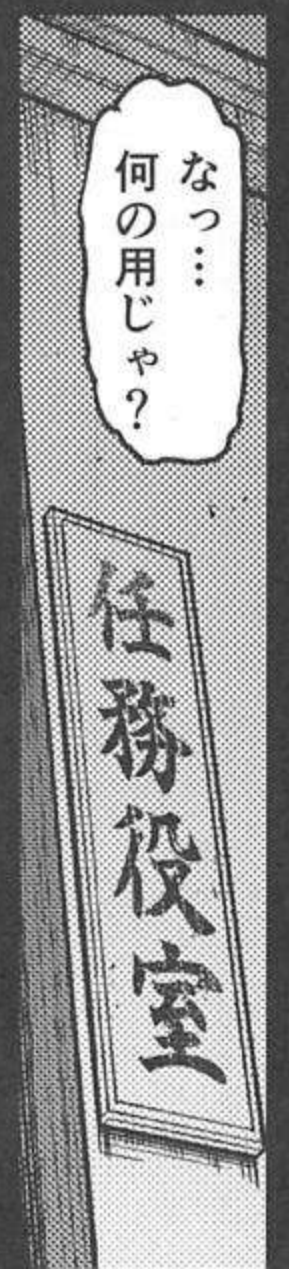 なっ…
何の用じゃ？
任務役室